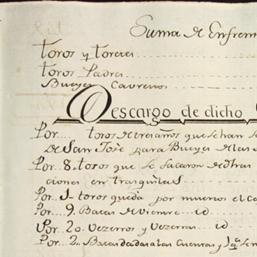 Suma de Enfren
toros y toretes
toros Padres
Bueyes Caureños
Descargo de dicho
Por... toros de tres años que se han se
de San José para Bueyes de las
Por 8. toros que se sacaron de otras
ciones en tranquilas
Por J. toros queda por muertos el co
Por 9. Bacas de Vientre id
Por 20. Vezerros y Vezerras id
Por 2.. Bacas dadas a las Cuentas y